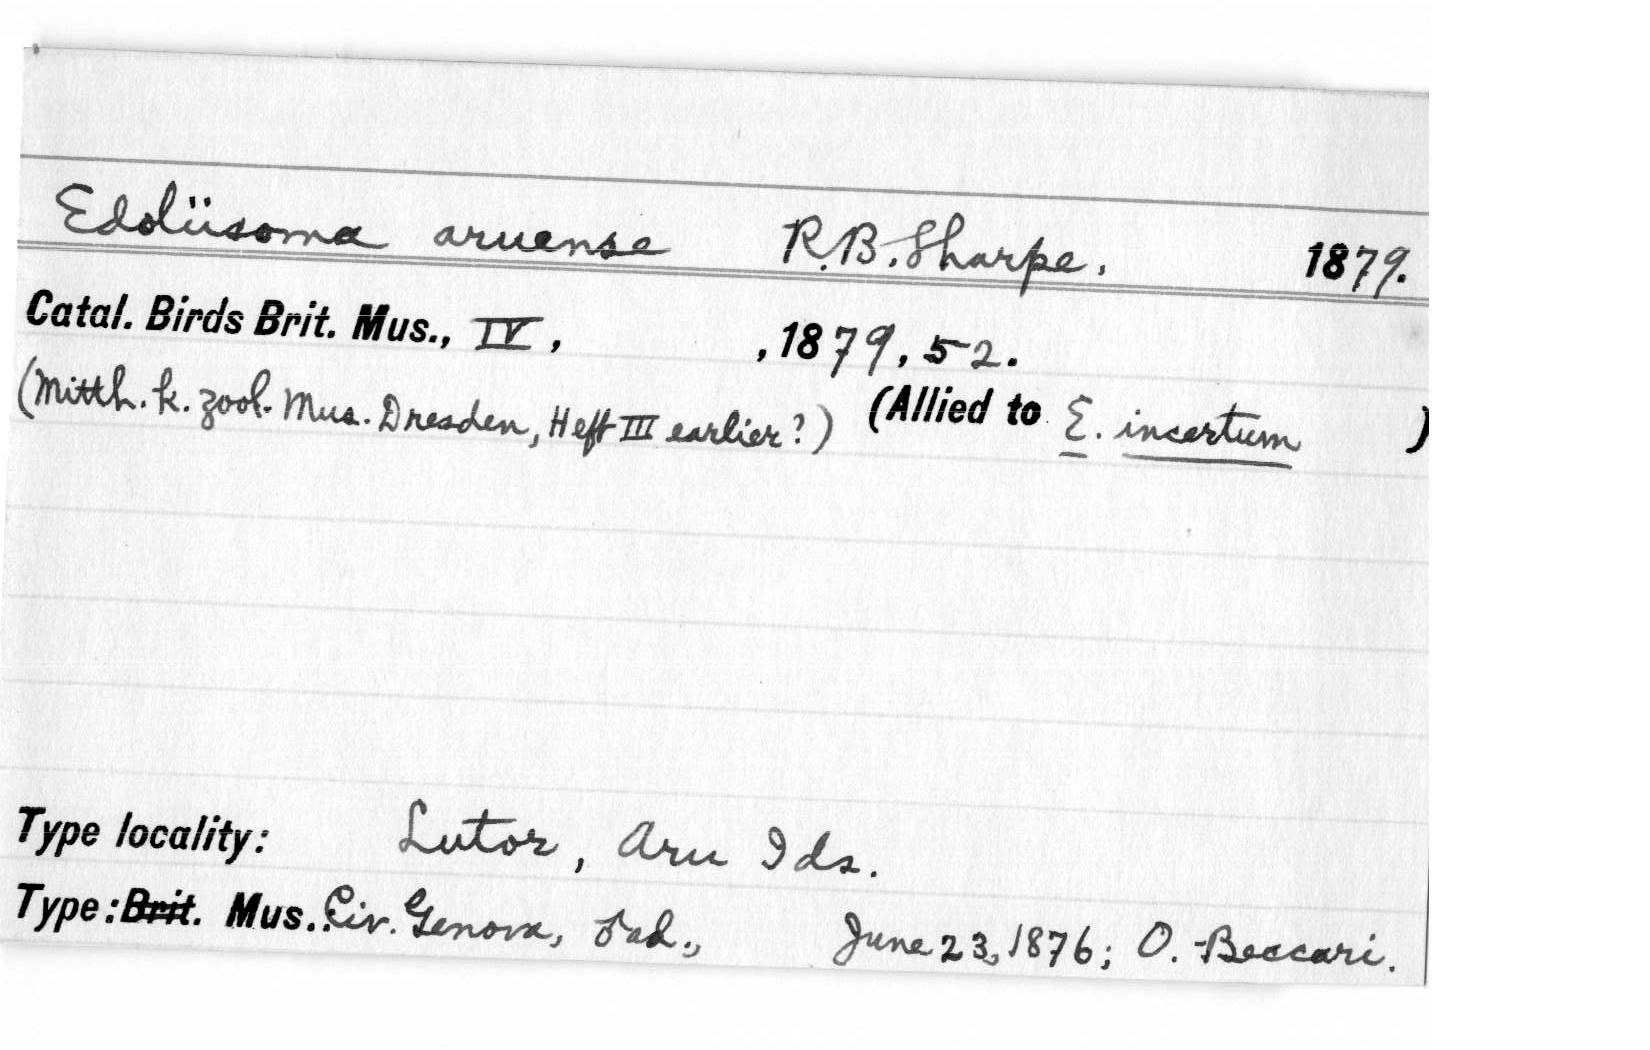 Edoliisoma aruense R.B. Sharpe. 1879.
Catal. Birds Brit. Mus., IV, , 1879, 52.
(Mitth. k. zool. Mus. Dresden, Heft III earlier?) (Allied to E. incertum )
Type locality: Lutor, Aru Ids.
Type: Brit. Mus. Civ. Genova, ♂ ad., June 23, 1876; O. Beccari.